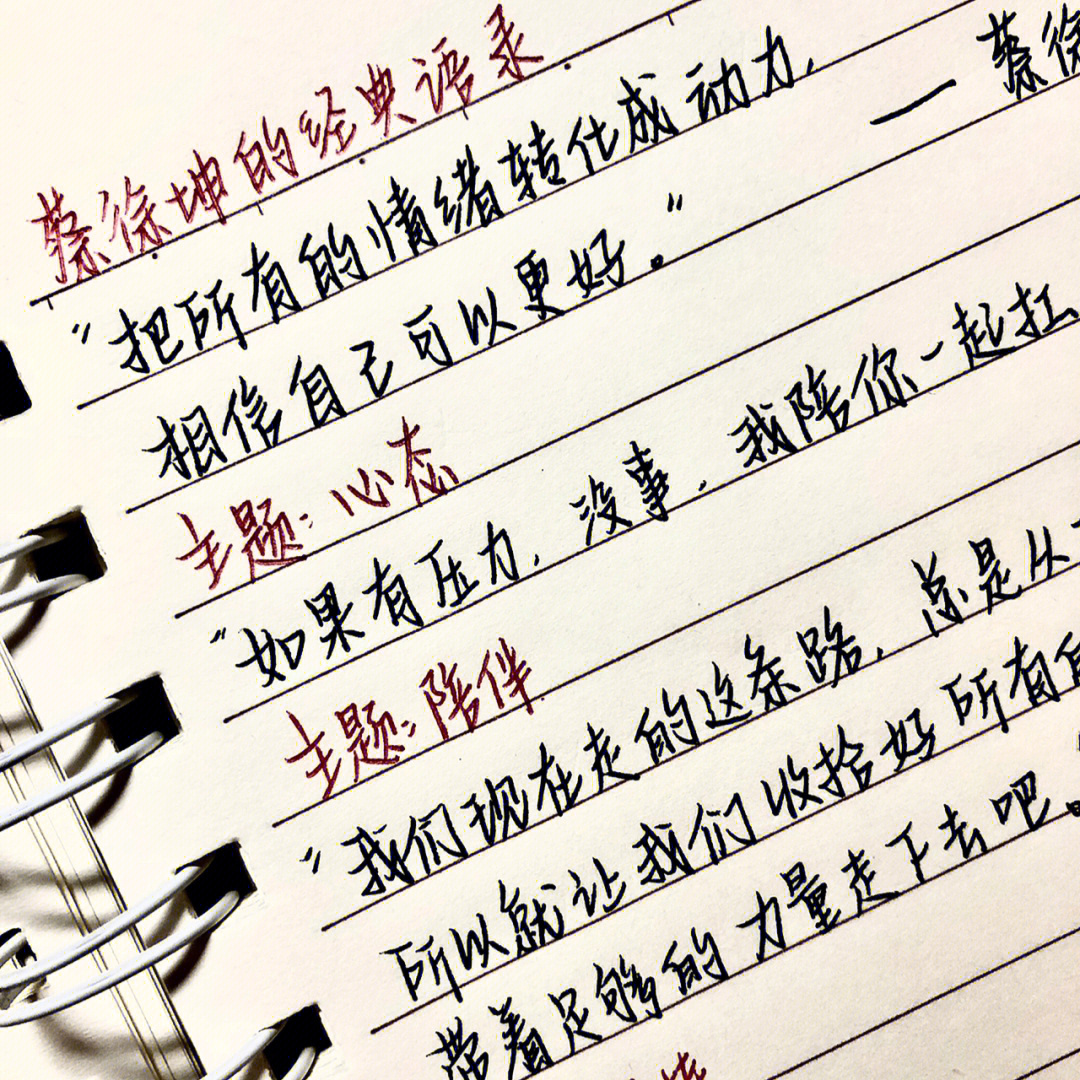 蔡徐坤的经典语录
"把所有的情绪转化成动力, — 蔡徐
相信自己可以更好。"
主题:心态
"如果有压力,没事,我陪你一起扛
主题:陪伴
"我们现在走的这条路,总是从
所以就让我们收拾好所有
带着足够的力量走下去吧。